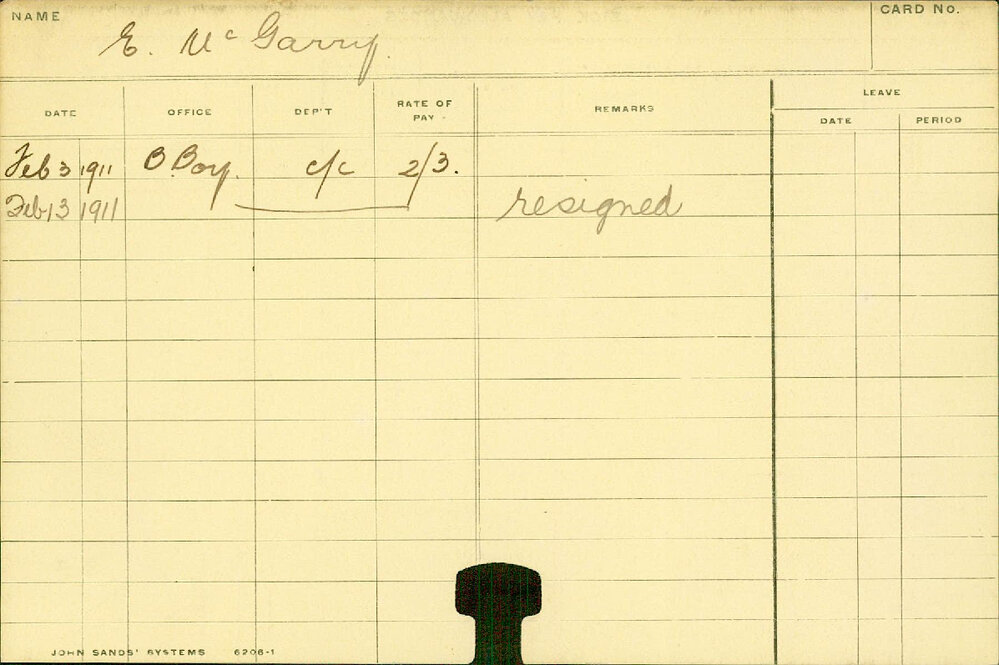 NAME
CARD No.
E. McGarry.
LEAVE
DATE OFFICE DEP'T RATE OF PAY REMARKS DATE PERIOD
Feb 3 1911 B. Boy. c/c 2/3.
Feb 13 1911 resigned
JOHN SANDS' SYSTEMS 6206-1